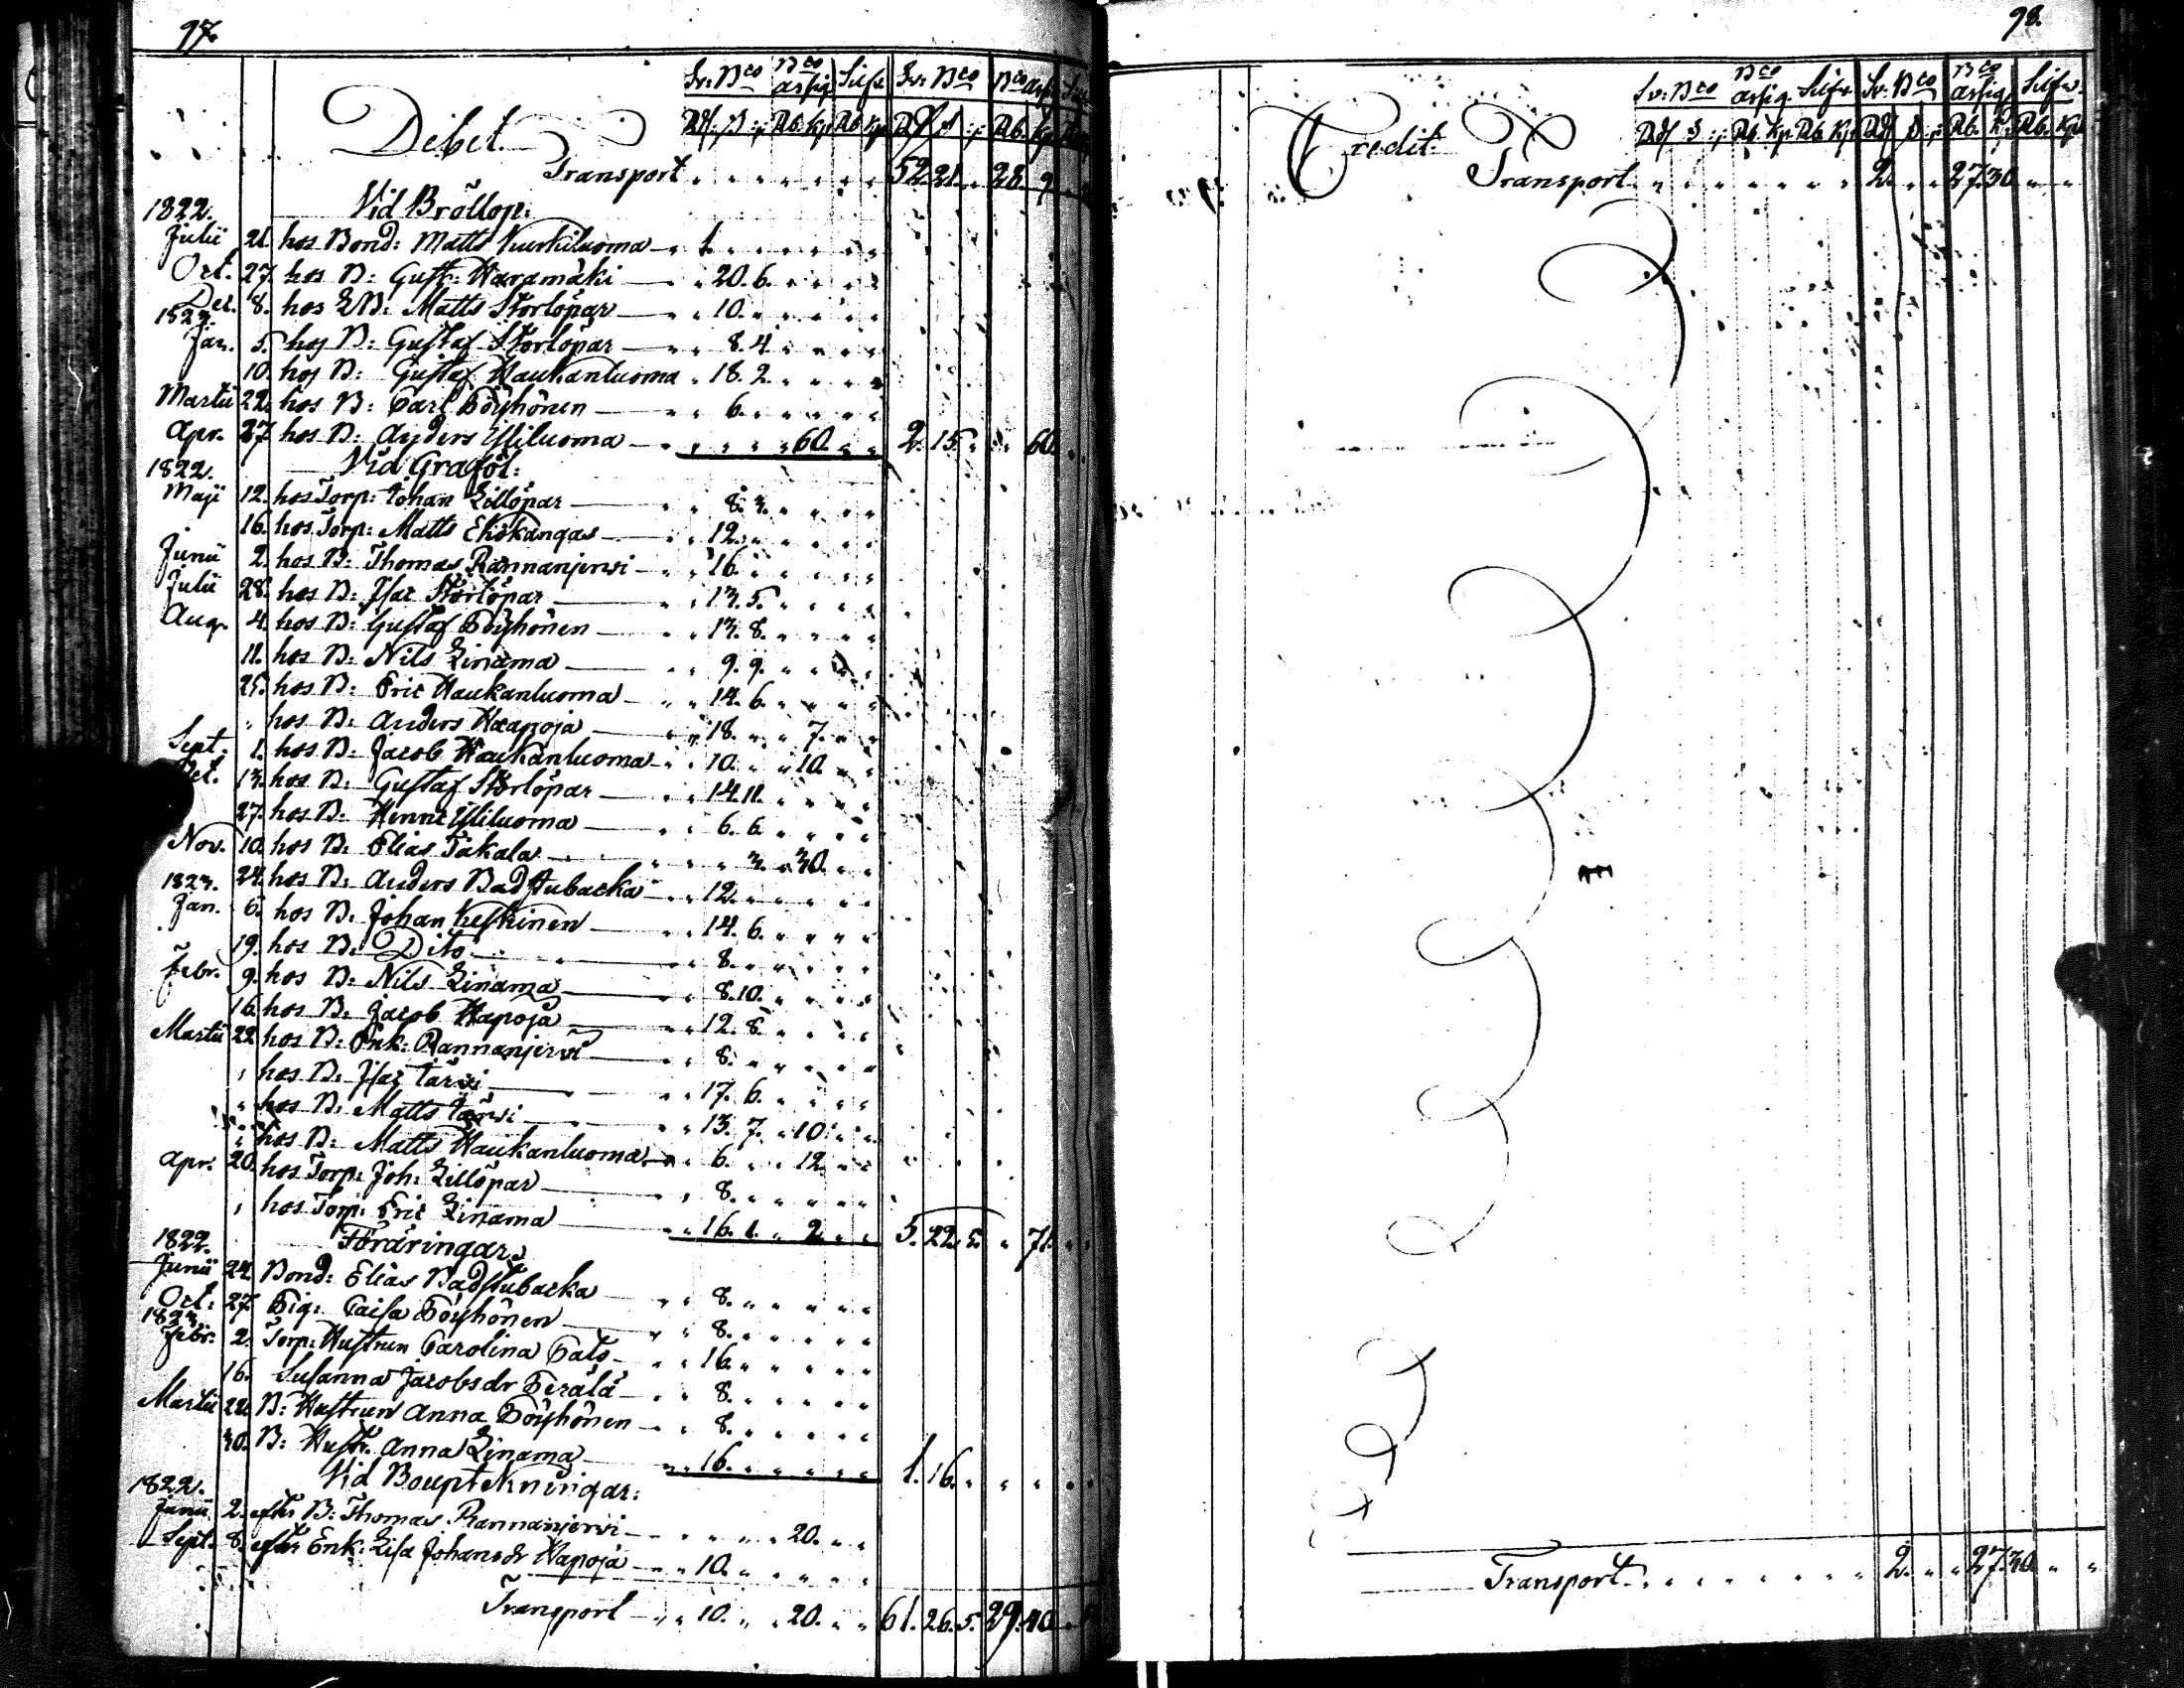 97.
Sv: Bco Bco assig. Silfv. Sv: Bco Bco assig
Debet. Rdl. s :, Rb. Kp. Rb. Kp. Rdl s :, Rb. Kp.
Transport 52. 21. 28. 9
1822. Vid Bröllop:
Julii 21. hos Bond: Matts Kurkiluoma 1.
Oct. 27. hos B: Gust: Haramäki 20. 6.
Dec. 8. hos B: Matts Storlöpar 10.
1823.
Jan. 5. hos B: Gustaf Storlöpar 8. 4
10. hos B: Gustaf Haukanluoma 18. 2.
Martii 22. hos B: Carl Pöyhönen 6.
Apr. 27 hos B: Anders Yliluoma 60. 2. 15. 60.
1822. Vid Graföl:
Maji 12. hos Torp: Johan Lillöpar 8. 3.
16. hos Torp: Matts Ehokangas 12.
Junii 2. hos B: Thomas Rannanjerwi 16.
Julii 28. hos B: Isac Storlöpar 13. 5.
Aug. 4. hos B: Gustaf Pöyhönen 13. 8.
11. hos B: Nils Linama 9. 9.
25. hos B: Eric Haukanluoma 14. 6.
" hos B: Anders Haapoja 18. 7.
Sept. 1. hos B: Jacob Haukanluoma 10. 10.
Oct. 13. hos B: Gustaf Storlöpar 14. 11.
27. hos B: Henric Yliluoma 6. 6.
Nov. 10. hos B: Elias Takala 3. 30.
24. hos B: Anders Badstubacka 12.
1823.
Jan. 6. hos B: Johan Keskinen 14. 6.
19. hos B: Dito 8.
Febr. 9. hos B: Nils Linama 8. 10.
16. hos B: Jacob Hapoja 12. 8.
Martii 22. hos B: Enk: Rannanjerwi 8.
" hos B: Isac Järwi 17. 6.
" hos B: Matts Järwi 13. 7. 10
" hos B: Matts Haukanluoma 6. 12.
Apr. 20. hos Torp: Joh: Lillöpar 8.
" hos Torp: Eric Linama 16. 1. 2. 5. 22. 5. 71.
1822. Föräringar
Junii 24. Bond: Elias Badstubacka 8.
Oct: 27. Pig: Caisa Pöyhönen 8.
1823.
Febr. 2. Torp: Hustrun Carolina Pats 16.
16. Susanna Jacobsdr Perälä 8.
Martii 22. B: Hustrun Anna Pöyhönen 8.
30. B: Hustr. Anna Linama 16. 1. 16.
1822. Vid Boupteckningar:
Junii 2. efter B: Thomas Rannanjerwi 20.
Sept. 8. efter Enk: Lisa Johansdr Hapoja 10.
Transport 10. 20. 61. 26. 5. 29. 40
98.
Sv: Bco Bco assig. Silfv. Sv: Bco Bco assig Silfv.
Credit. Rdl s :, Rb. Kp. Rb. Kp. Rdl s :, Rb. K. Rb. Kp
Transport 2. 27. 30
Transport 2. 27. 30